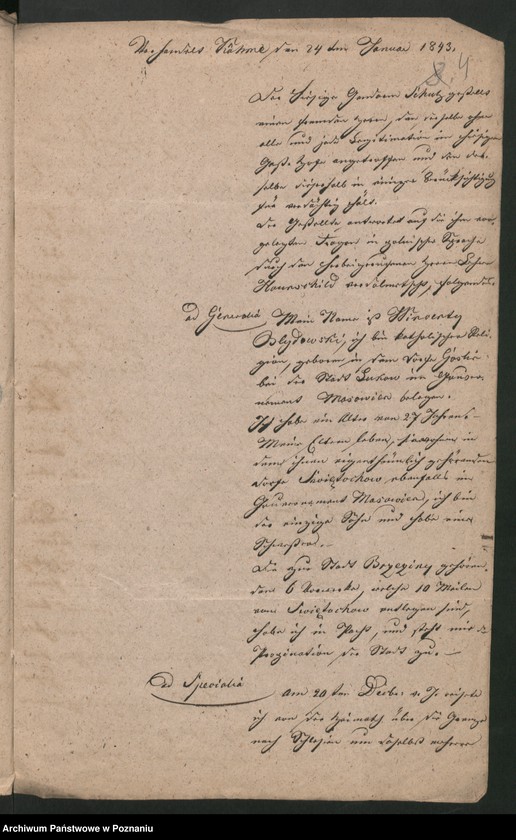 Verhandelt Kähme, den 24ten Januar 1843.
4
Der hiesige Gendarm Schulz gestellt
einen fremden Herrn, den derselbe ohne
alle und jede Legitimation im hiesigen
Gast-Hofe angetroffen und den der-
selbe dieserhalb in einiger
für verdächtig hält.
Der Gestellte, antwortet auf die ihm vor-
gelegten Fragen in polnischer Sprache
durch den Herrn
verdolmetscht, folgendes
ad Generalia Mein Name ist Wincenty
ich bin katholischer Reli-
gion, geboren in dem Dorfe Górki
bei der Stadt Lukow im Gouver-
nement Masowien belegen.
Ich habe ein Alter von 27 Jahren.-
Meine Eltern leben, bewohnen in
dem ihnen eigenthümlich gehörenden
Dorfe Swiętochow ebenfalls im
Gouvernement Masowien, ich bin
der einzige Sohn und habe eine
Schwester.-
Die zur Stadt Brzeziny gehören-
den 6 welche 10 Meilen
von Swiętochow entlegen sind,
habe ich in Pacht, und steht mir die
Propination der Stadt zu.-
ad Specialia Am 20ten Decbr v. J. reiste
ich von der Heimath über die Grenze
nach Schlesien um daselbst mehrere
Archiwum Państwowe w Poznaniu